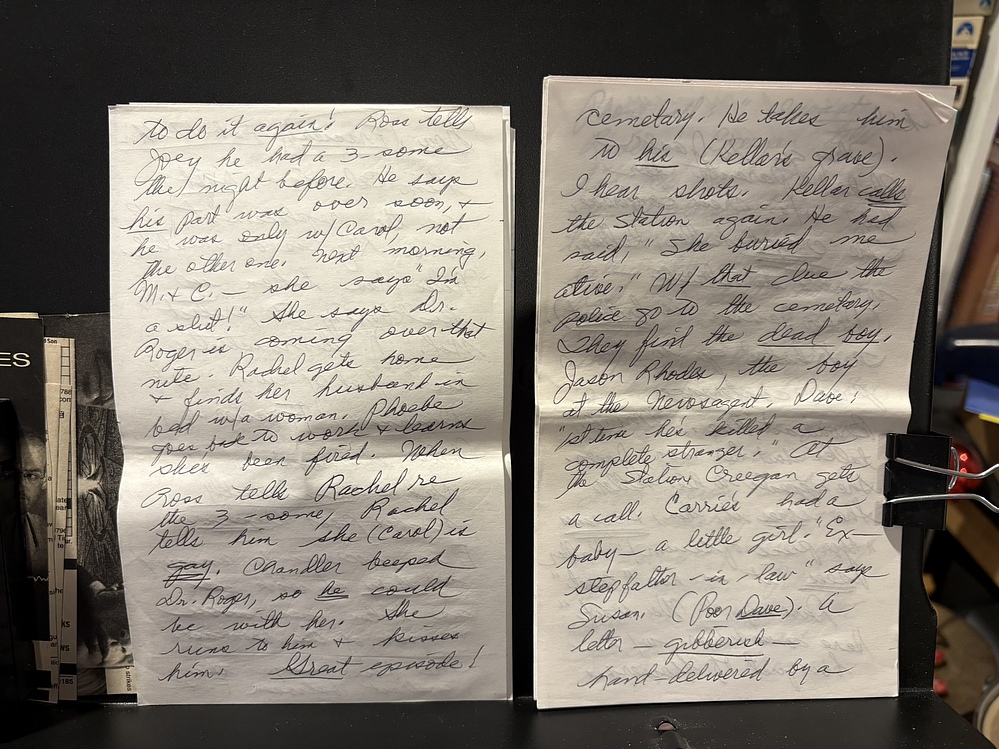 to do it again! Ross tells
Joey he had a 3-some
the night before. He says
his part was over soon, +
he was only w/ Carol, not
the other one. Next morning,
M. + C. — she says "I'm
a slut!" She says Dr.
Roger is coming over that
nite. Rachel gets home
+ finds her husband in
bed w/a woman. Phoebe
goes back to work & learns
she's been fired. When
Ross tells Rachel re
the 3-some, Rachel
tells him she (Carol) is
gay. Chandler beeped
Dr. Roger, so he could
be with her. She
runs to him + kisses
him. Great episode!
cemetary. He takes him
to his (Kellar's grave).
I hear shots. Kellar calls
the Station again. He had
said, "She buried me
alive." W/ that clue the
police go to the cemetary.
They find the dead boy,
Jason Rhodes, the boy
at the Newsagent. Dave:
"1st time he's killed a
complete stranger." At
the Station Creegan gets
a call. Carrie's had a
baby — a little girl. "Ex-
stepfather-in-law" says
Susan. (Poor Dave). A
letter — gibberish —
hand-delivered by a
ES
strikes